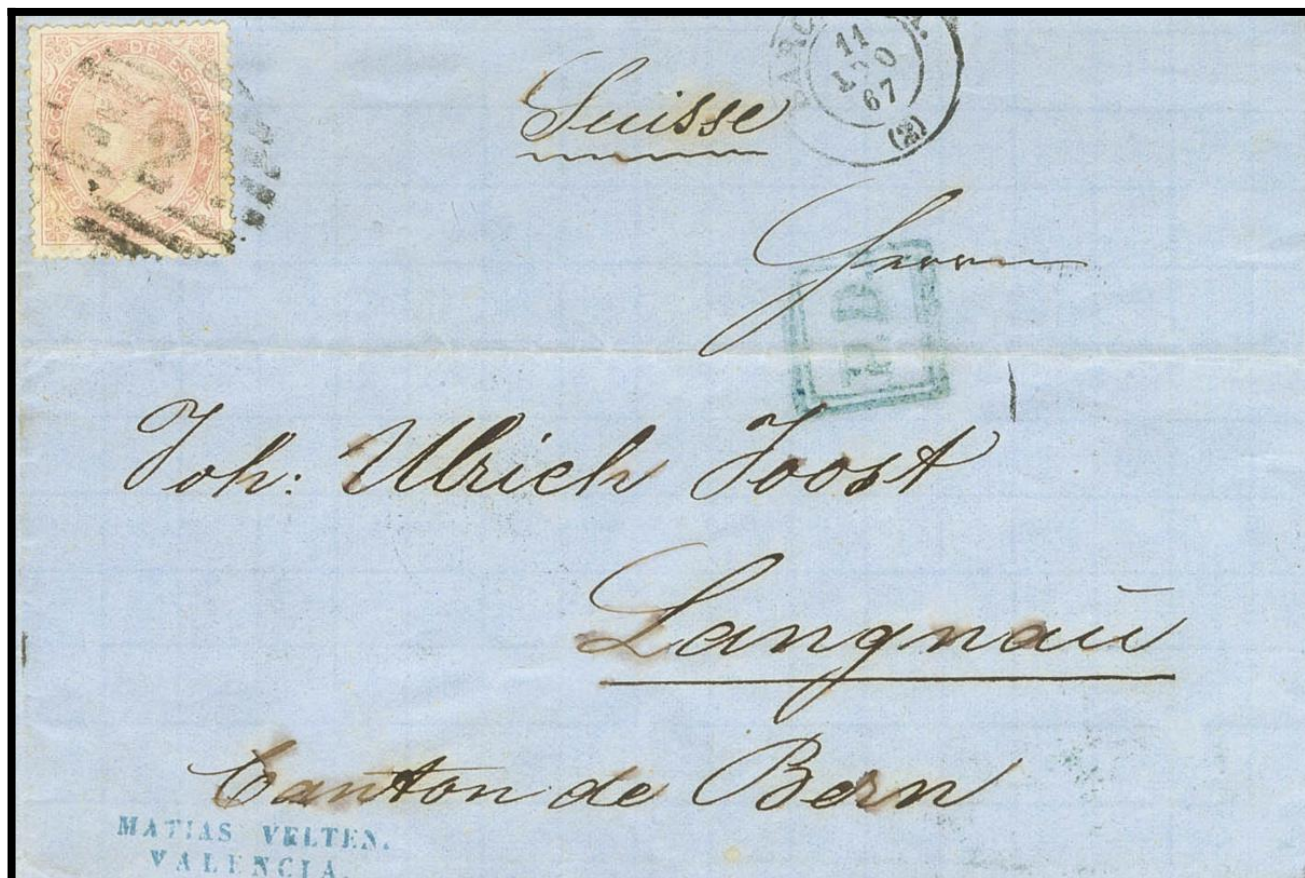 CORREOS DE ESPAÑA
BARC
11
AGO
67
(2)
Suisse
Herrn
P.D.
Joh: Ulrich Joost
Langnaŭ
Canton de Bern
MATIAS VELTEN.
VALENCIA.